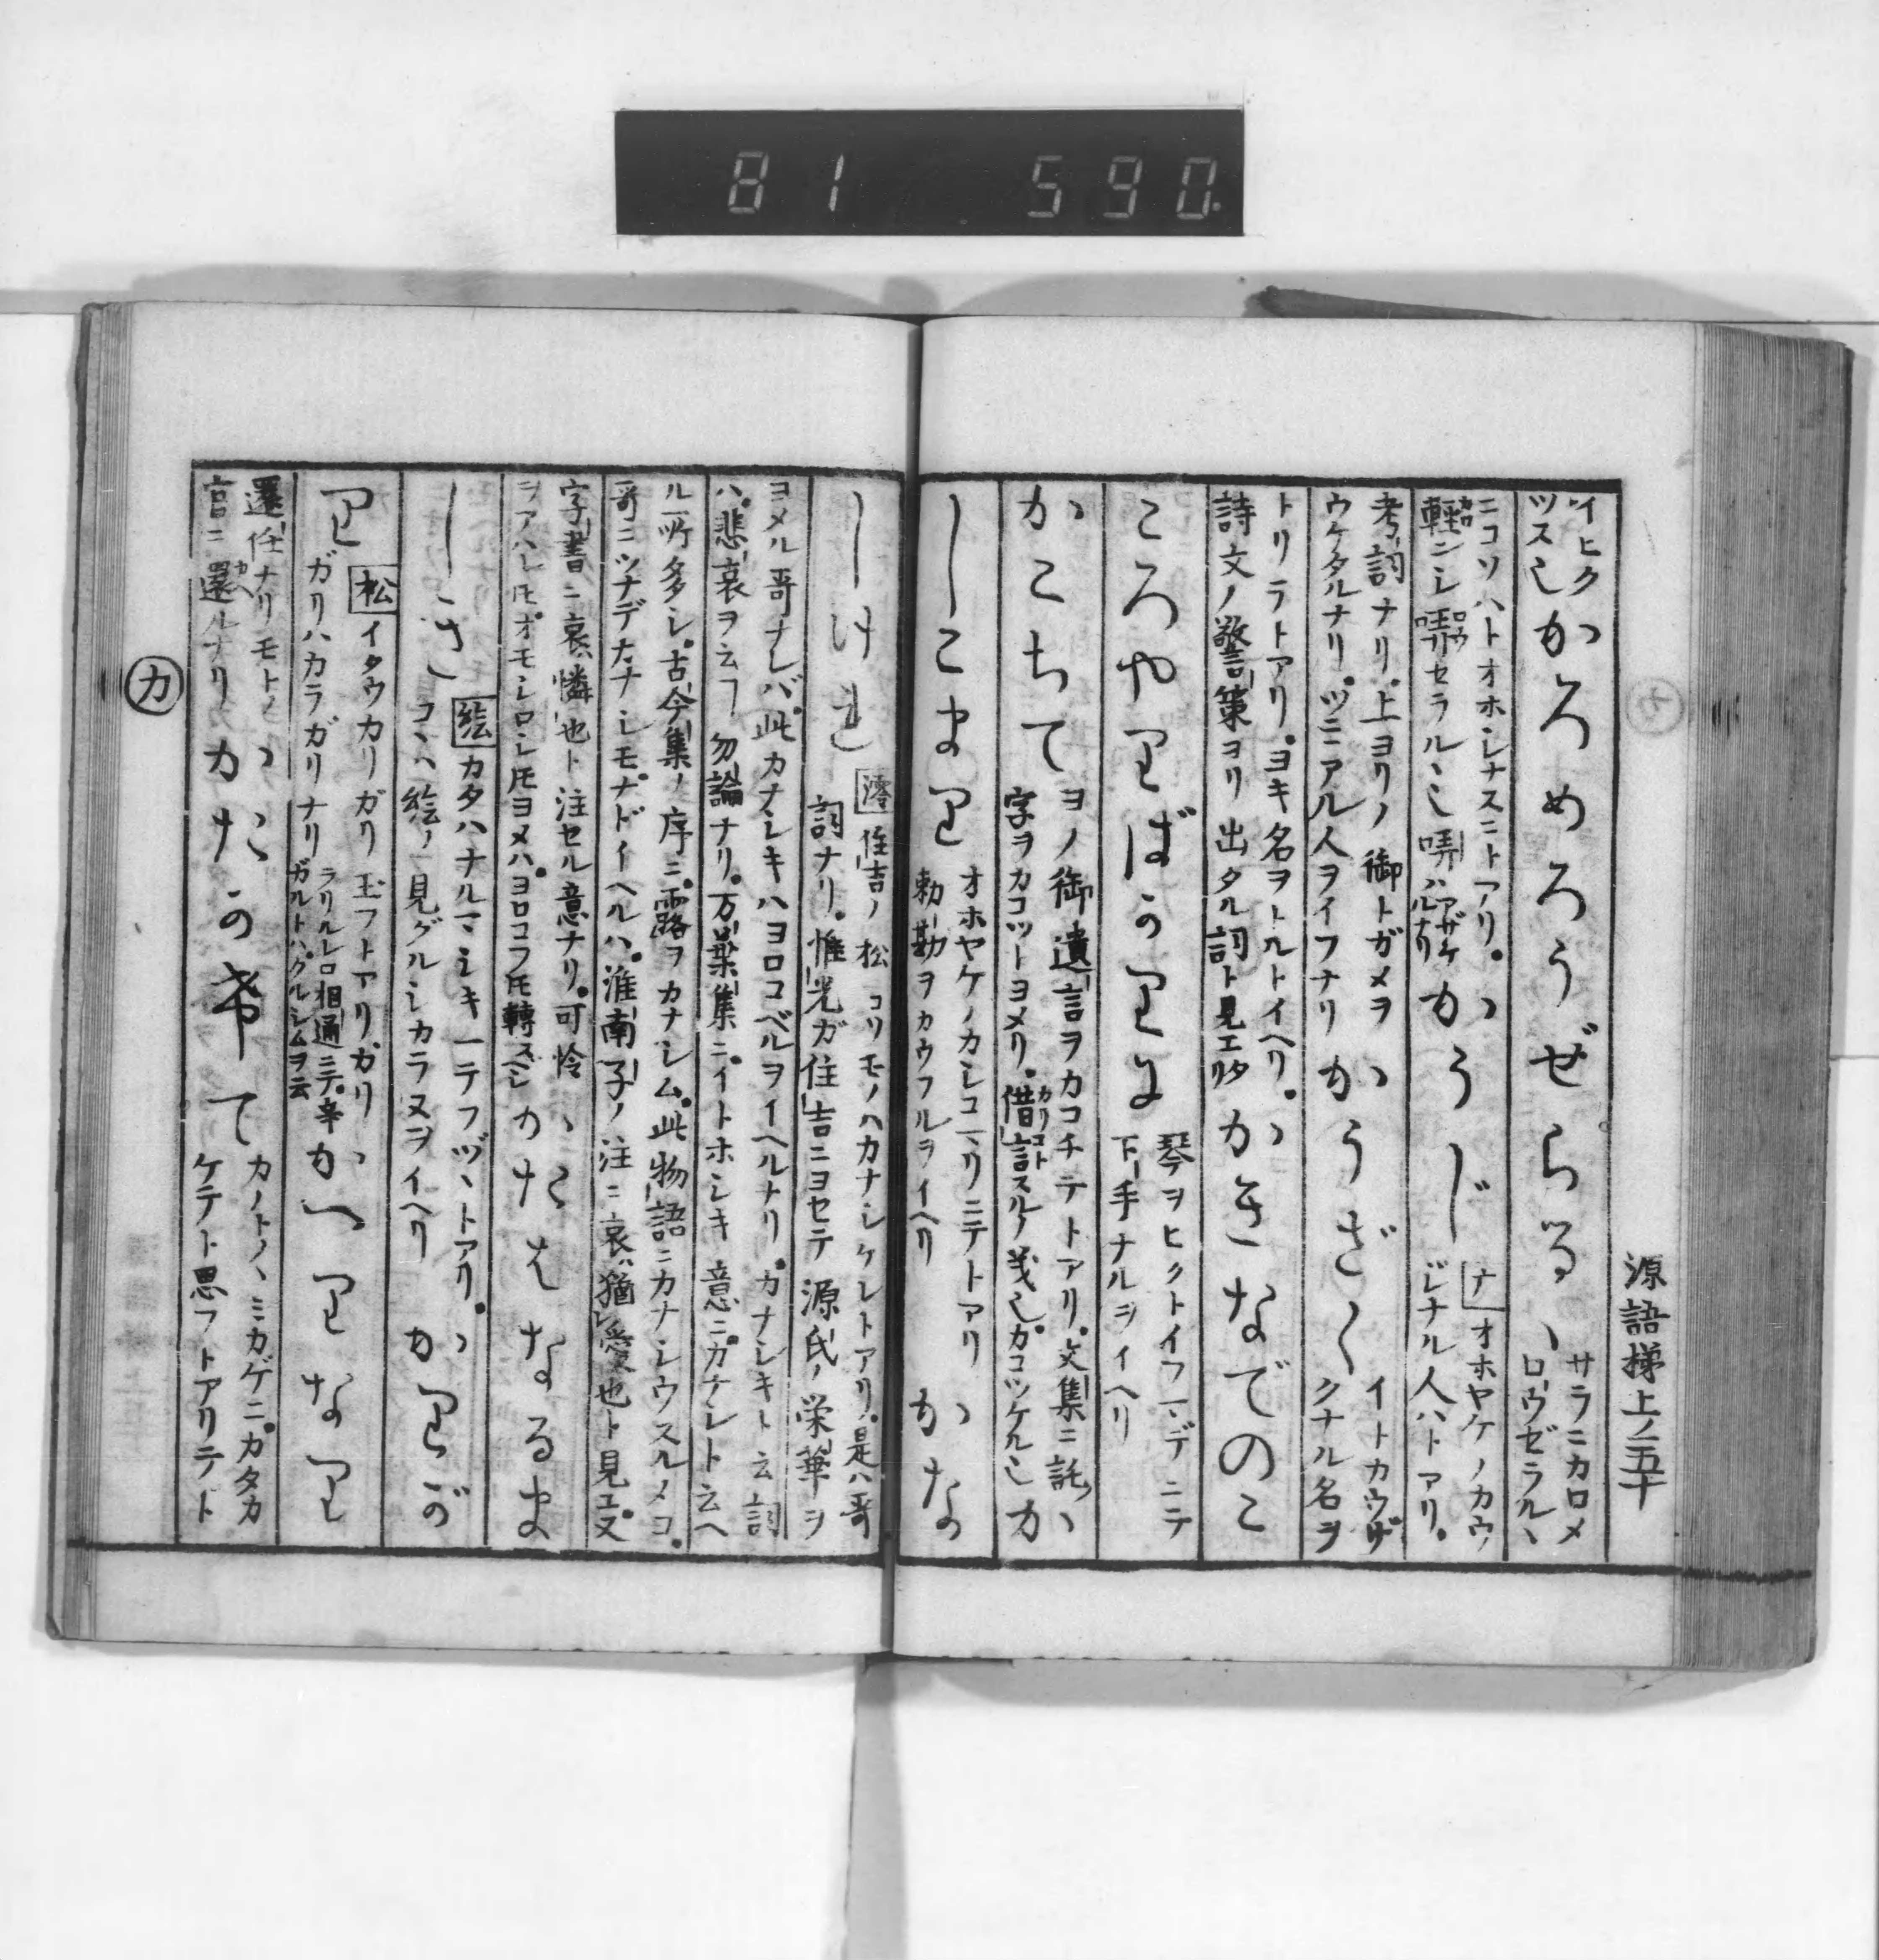 81 590
源語梯上ノ五十
イヒク
ツスし
かろめろうぜらるゝ
サラニカロメ
ロウゼラルヽ
ニコソハトオホシナスニトアリ。
軽シ哢セラルヽし哢ハアザケルナリ
かうじ
ナ オホヤケノカウ
ジナル人ハトアリ。
考詞ナリ。上ヨリノ御トガメヲ
ウケタルナリ。ツニニアル人ヲイフナリ
かうざく
イトカウザ
クナル名ヲ
トリラトアリ。ヨキ名ヲトルトイヘリ。
詩文ノ警策ヨリ出タル詞ト見エタリ
かきなでのこ
ころやりばかりに
琴ヲヒクトイフヿデニテ
下手ナルヲイヘリ
かこちて
ヨノ御遺言ヲカコチテトアリ。文集ニ託ノ
字ヲカコツトヨメリ。借言スルノ義し。カコツケルし
かしこまり
オホヤケノカシコマリニテトアリ
勅勘ヲカウフルヲイヘリ
かな
しけれ
澪 住吉ノ松コソモノハカナシケレトアリ。是ハ哥
詞ナリ。惟光ガ住吉ニヨセテ源氏ノ栄華ヲ
ヨメル哥ナレバ。此カナシキハヨロコベルヲイヘルナリ。カナシキト云詞
ハ。悲哀ヲ云フ勿論ナリ。万葉集ニ。イトホシキ意ニ。カナシト云ヘ
ル所多シ。古今集ノ序ニ。露ヲカナシム。此物語ニカナシウスルメコ。
哥ニツナデカナシモ。ナドイヘルハ。淮南子ノ注ニ哀ハ猶愛也ト見エ。又
字書ニ哀ハ憐也ト注セル意ナリ。可怜
ヲアハレ𪜈。オモシロシ𪜈ヨメハ。ヨロコフ𪜈轉スベシ
かたはなるま
しき
絵 カタハナルマシキヿテフヅヽトアリ。
コヽハ絵ノ見グルシカラヌヲイヘリ
かりが
り
松 イタウカリガリ玉フトアリガリ
ガリハカラガリナリ
ラリルレロ相通ニテ。辛
ガルトハ。クルシムヲ云
かへりなり
還任ナリモトノ
官ニ還ルナリ
かたかけて
カノトノヽミカゲニ。カタカ
ケテト思フトアリテト
カ